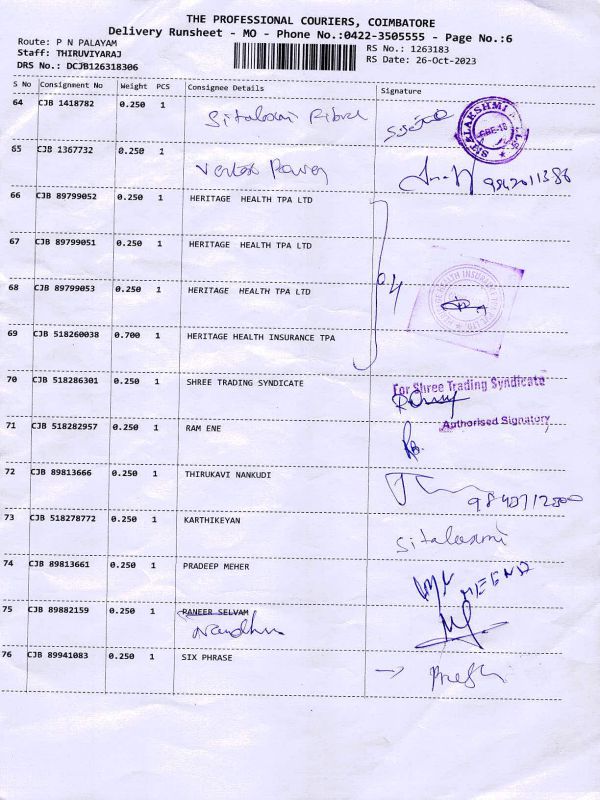 THE PROFESSIONAL COURIERS, COIMBATORE
Delivery Runsheet - MO - Phone No.:0422-3505555 - Page No.:6
Route: P N PALAYAM
Staff: THIRUVIYARAJ
DRS No.: DCJB126318306
RS No.: 1263183
RS Date: 26-Oct-2023
S No Consignment No Weight PCS Consignee Details Signature
64 CJB 1418782 0.250 1 Sitalaxmi
65 CJB 1367732 0.250 1
66 CJB 89799052 0.250 1 HERITAGE HEALTH TPA LTD
67 CJB 89799051 0.250 1 HERITAGE HEALTH TPA LTD
68 CJB 89799053 0.250 1 HERITAGE HEALTH TPA LTD 04
69 CJB 518260038 0.700 1 HERITAGE HEALTH INSURANCE TPA
70 CJB 518286301 0.250 1 SHREE TRADING SYNDICATE For Shree Trading Syndicate
Authorised Signatory
71 CJB 518282957 0.250 1 RAM ENE
72 CJB 89813666 0.250 1 THIRUKAVI NANKUDI
73 CJB 518278772 0.250 1 KARTHIKEYAN Sitalaxmi
74 CJB 89813661 0.250 1 PRADEEP MEHER MEENA
75 CJB 89882159 0.250 1 PANEER SELVAM
Nandhu
76 CJB 89941083 0.250 1 SIX PHRASE